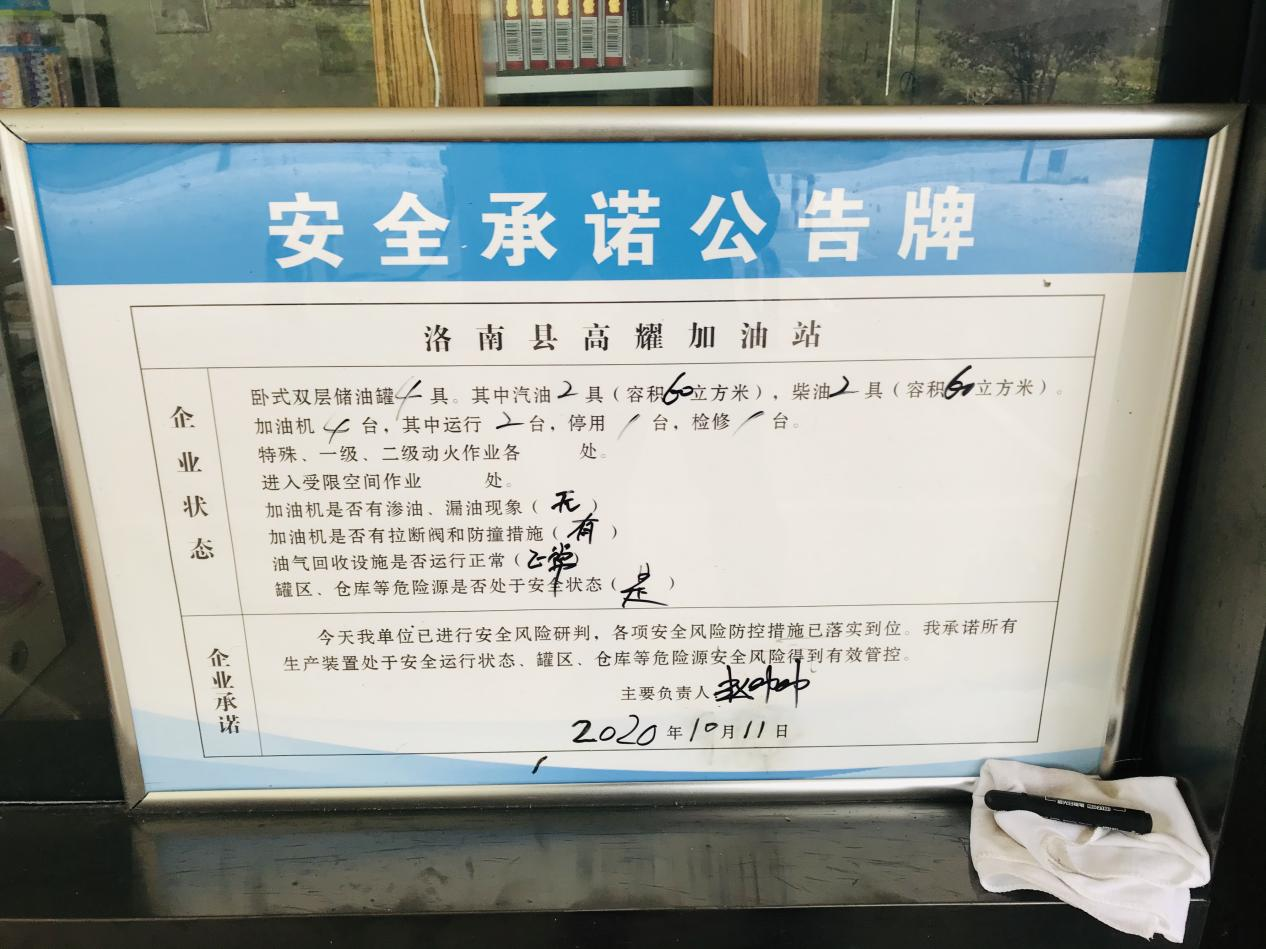 安全承诺公告牌
洛南县高耀加油站
企业状态
卧式双层储油罐4具。其中汽油2具（容积60立方米），柴油2具（容积60立方米）。
加油机4台，其中运行2台，停用1台，检修1台。
特殊、一级、二级动火作业各 处。
进入受限空间作业 处。
加油机是否有渗油、漏油现象（无）
加油机是否有拉断阀和防撞措施（有）
油气回收设施是否运行正常（正常）
罐区、仓库等危险源是否处于安全状态（是）
企业承诺
今天我单位已进行安全风险研判，各项安全风险防控措施已落实到位。我承诺所有
生产装置处于安全运行状态、罐区、仓库等危险源安全风险得到有效管控。
主要负责人
2020年10月11日